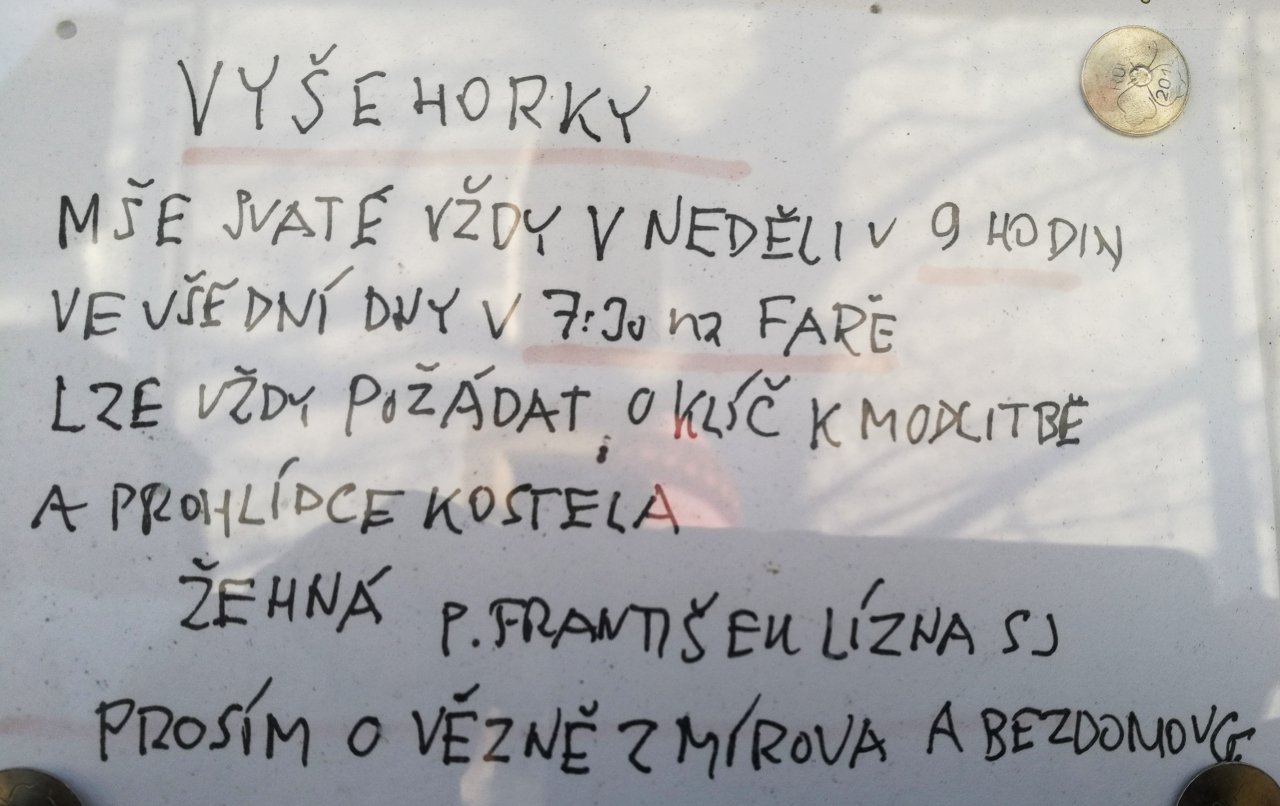 VYŠEHORKY
MŠE SVATÉ VŽDY V NEDĚLI V 9 HODIN
VE VŠEDNÍ DNY V 7:30 na FAŘE
LZE VŽDY POŽÁDAT O KLÍČ K MODLITBĚ
A PROHLÍDCE KOSTELA
ŽEHNÁ P. FRANTIŠEK LÍZNA SJ
PROSÍM O VĚZNĚ Z MÍROVA A BEZDOMOVCE